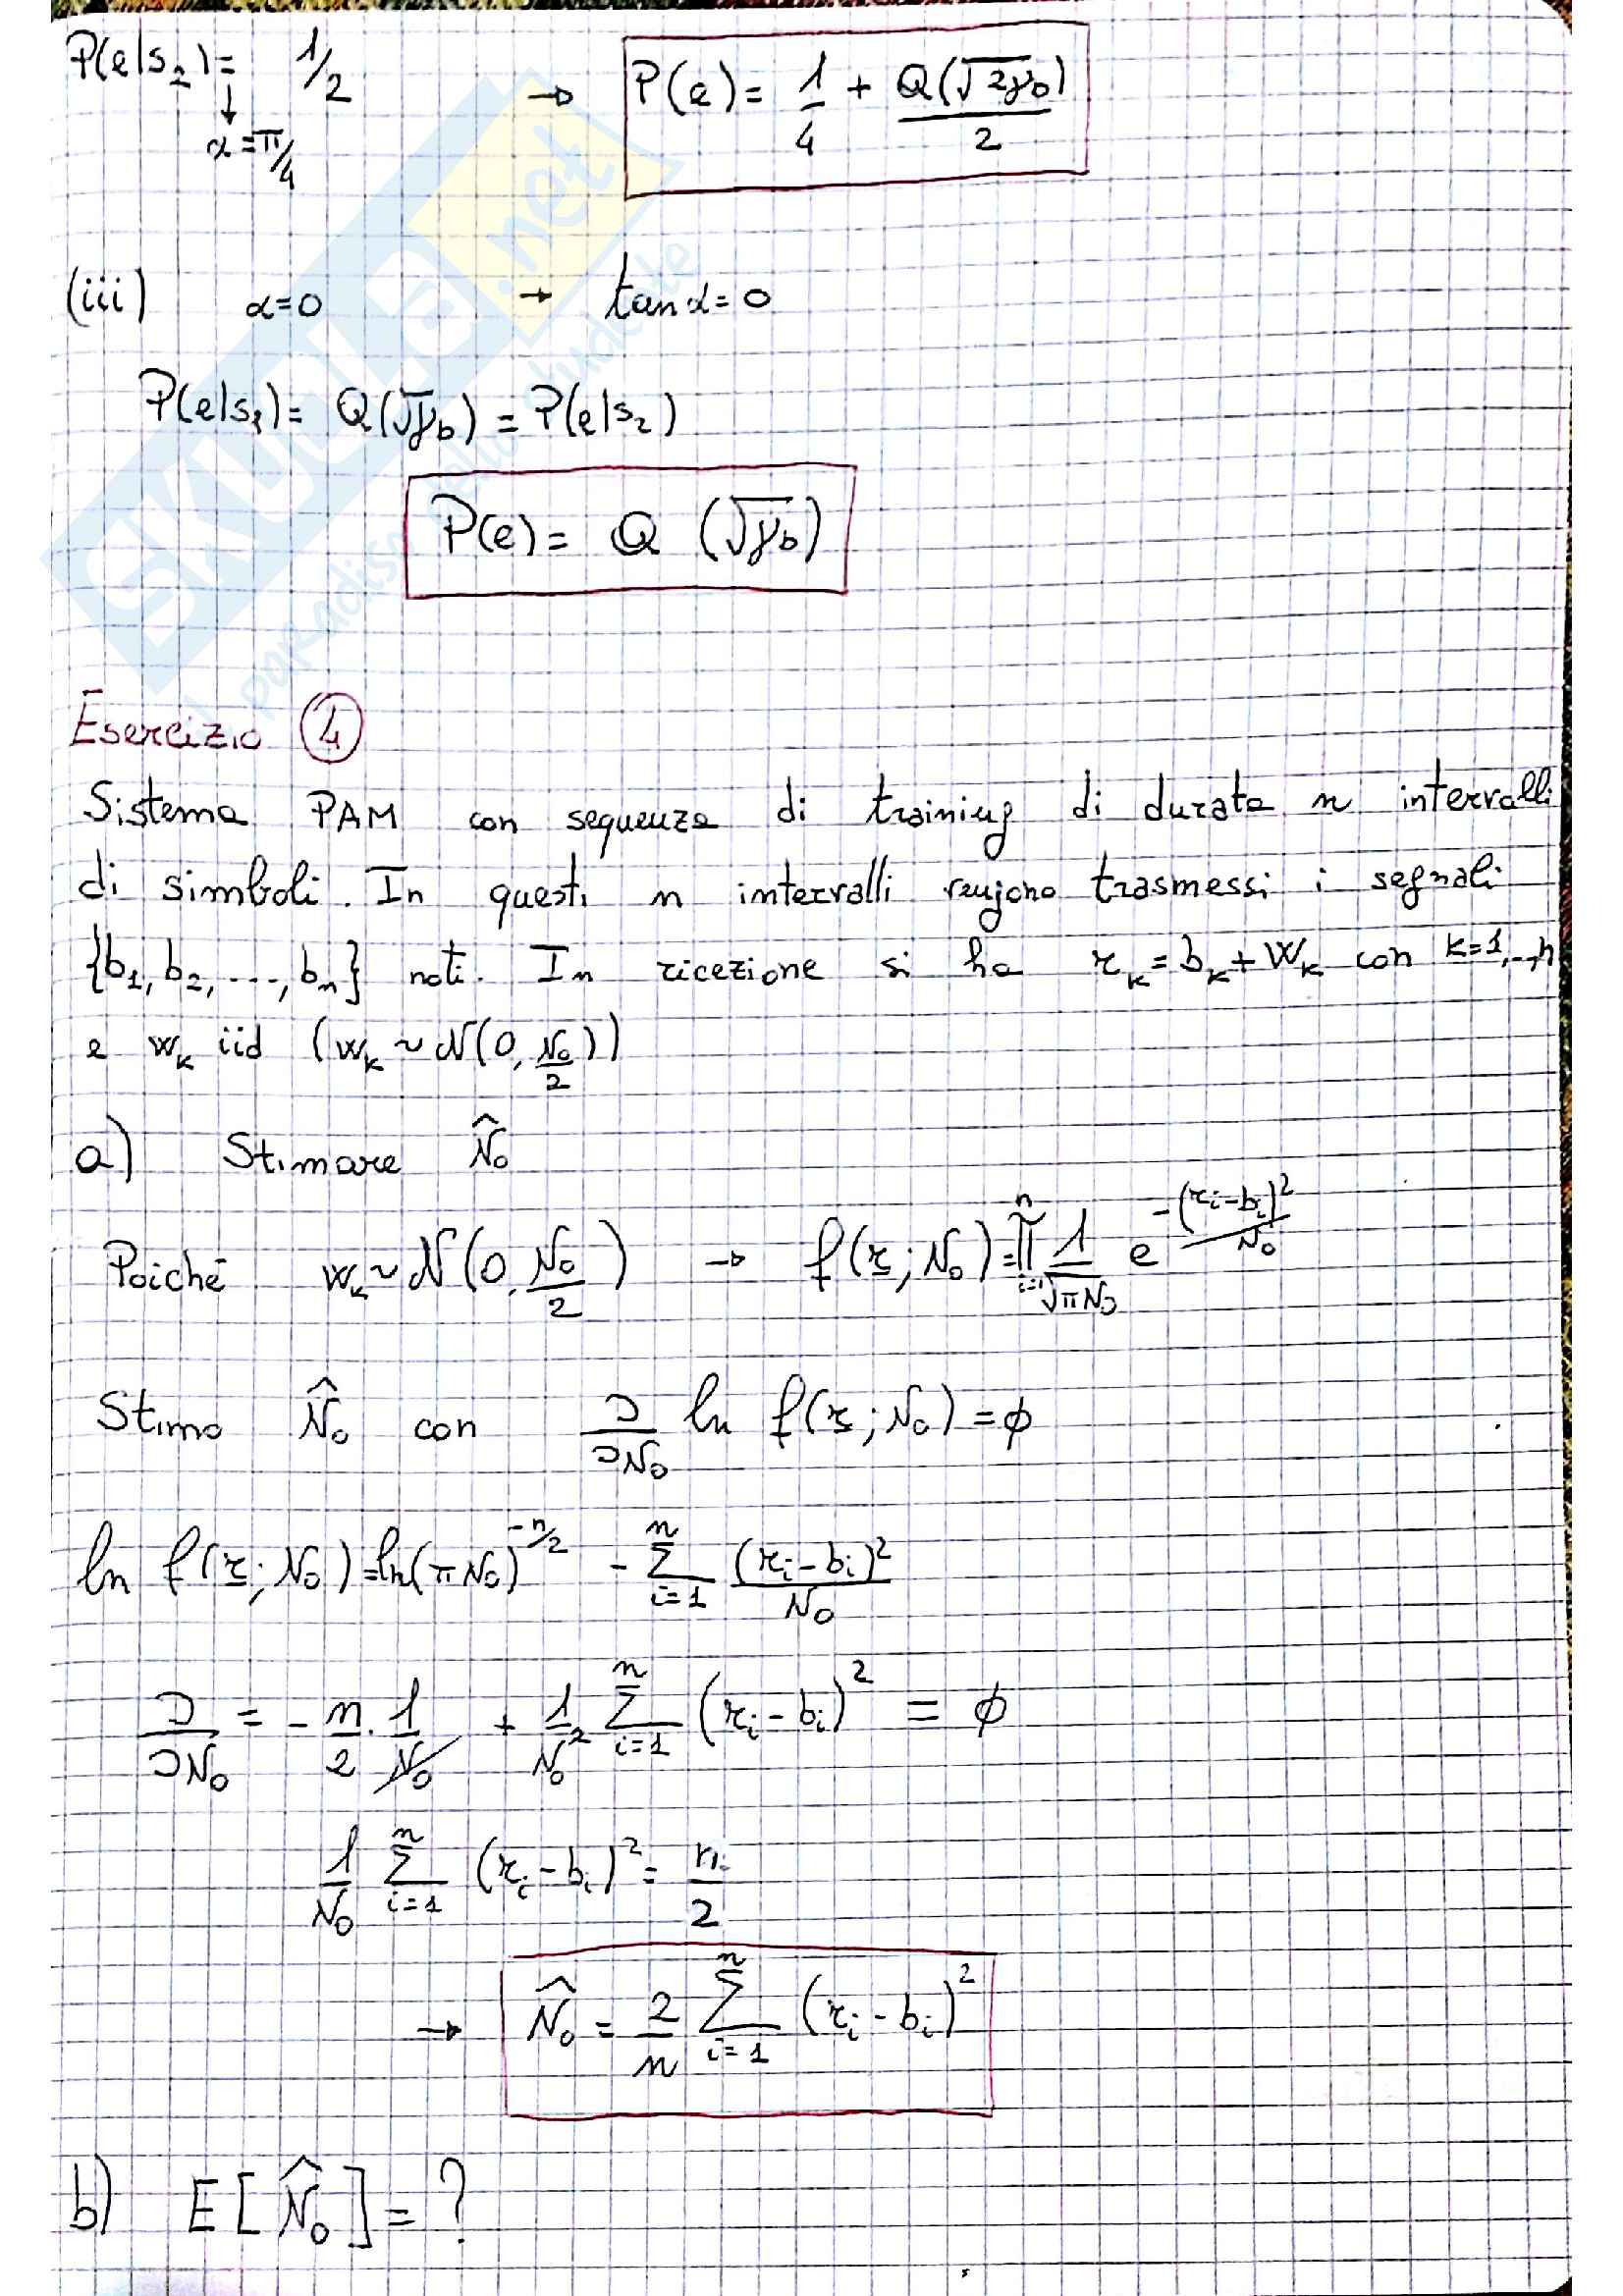 P(e|s₂) = 1/2 → P(e) = 1/4 + Q(√2γb)/2
↓
α = π/4
(iii) α=0 → tan α = 0
P(e|s₁) = Q(√γb) = P(e|s₂)
P(e) = Q (√γb)
SKUOLA.net
il paradiso dello studente
Esercizio 4
Sistema PAM con sequenza di training di durata n intervalli
di simboli. In questi n intervalli vengono trasmessi i segnali
{b₁, b₂, ..., bn} noti. In ricezione si ha rk = bk + Wk con k=1,..,n
e wk iid (wk ~ N(0, N₀/2))
a) Stimare N̂₀
Poiché wk ~ N(0, N₀/2) → f(r; N₀) = ∏ i=1 n 1/√πN₀ e^-(ri-bi)²/N₀
Stimo N̂₀ con ∂/∂N₀ ln f(r; N₀) = ϕ
ln f(r; N₀) = ln(πN₀)^-n/2 - Σ i=1 n (ri - bi)²/N₀
∂/∂N₀ = - n/2 · 1/N₀ + 1/N₀² Σ i=1 n (ri - bi)² = ϕ
1/N₀ Σ i=1 n (ri - bi)² = n/2
→ N̂₀ = 2/n Σ i=1 n (ri - bi)²
b) E[N̂₀] = ?